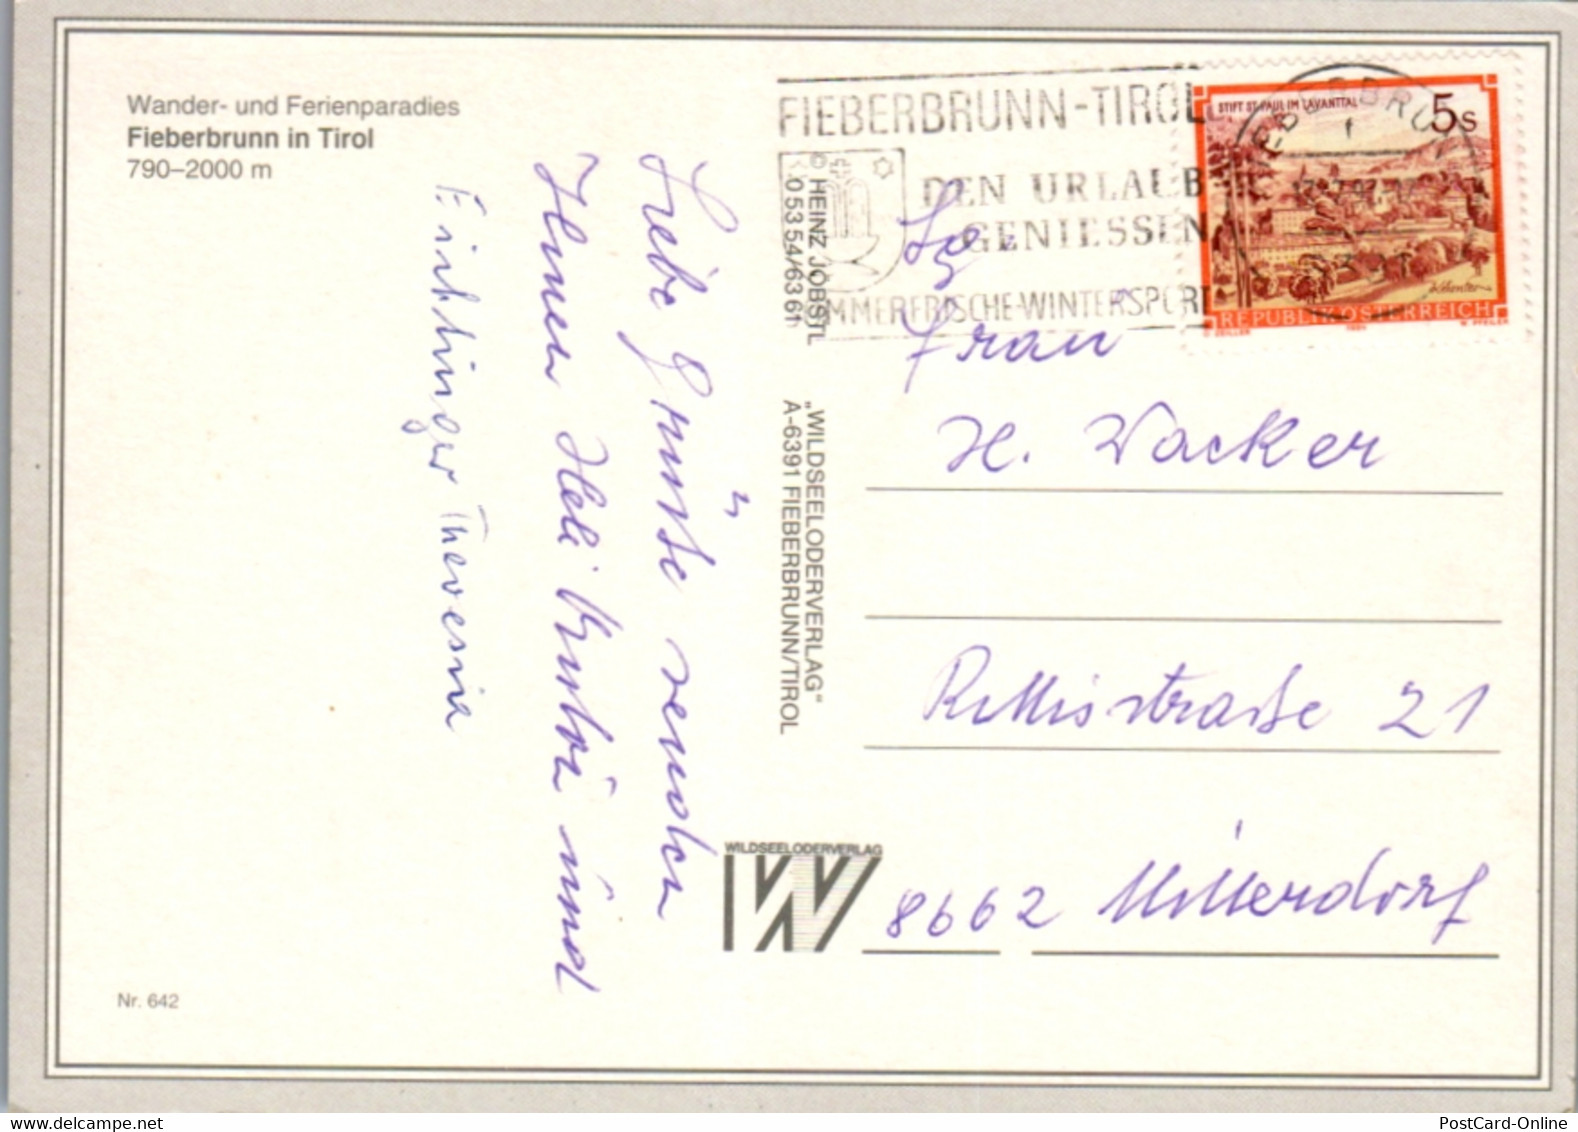 Wander- und Ferienparadies
Fieberbrunn in Tirol
790–2000 m
Liebe Grüße senden
Ihnen Heli Kurti und
Theresia
Nr. 642
© HEINZ JÖBSTL
0 53 54/63 61
„WILDSEELODERVERLAG“
A-6391 FIEBERBRUNN/TIROL
WILDSEELODERVERLAG
W
FIEBERBRUNN-TIROL
DEN URLAUB
GENIESSEN
MMERFRISCHE-WINTERSPORT
STIFT ST. PAUL IM LAVANTTAL
5 S
REPUBLIK ÖSTERREICH
Frau
H. Wacker
21
8662 Mitterdorf
PostCard-Online